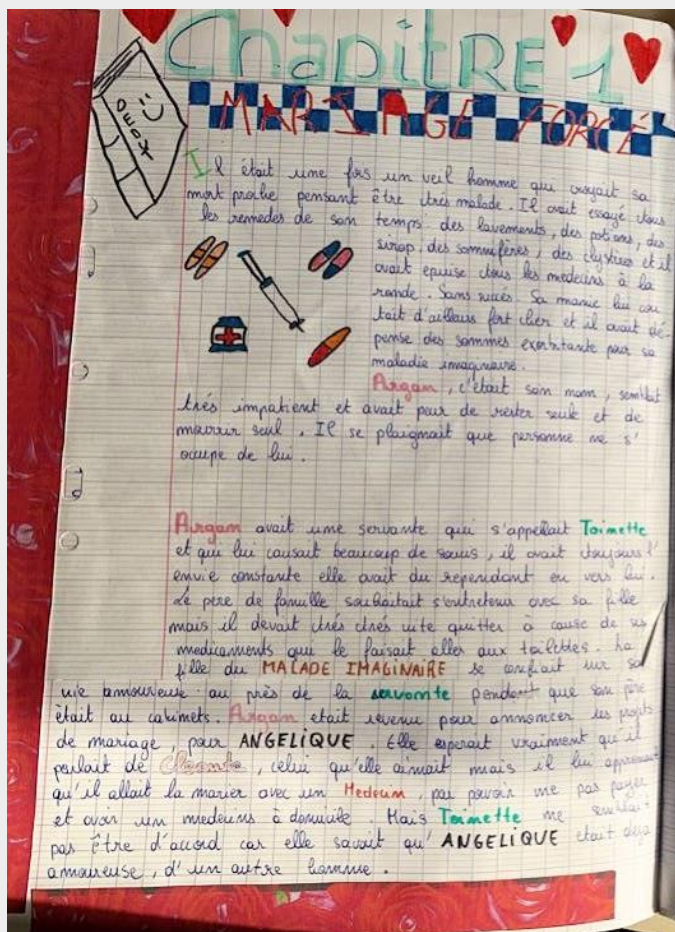 ChapitRE 1
MARIAGE FORCÉ
DEOX
Il était une fois un veil homme qui croyait sa
mort proche pensant être très malade. Il avait essayé tous
les remedes de son temps: des lavements, des potions, des
sirop, des somnifères, des clystères et il
avait epuise tous les medecins à la
ronde. Sans succès. Sa manie lui cou
tait d'ailleurs fort cher et il avait dé-
pense des sommes exorbitante pour sa
maladie imaginaire.
Argan, c'était son nom, semblait
très impatient et avait peur de rester seule et de
mourrir seul. Il se plaignait que personne ne s'
occupe de lui.
Argan avait une servante qui s'appellait Toinette
et qui lui causait beaucoup de soucis, il avait toujours l'
envie constante elle avait du rependant en vers lui.
Le pere de famille souhaitait s'entretenir avec sa fille
mais il devait très très vite quitter à cause de ses
medicaments qui le faisait aller aux toilettes. La
fille du MALADE IMAGINAIRE se confiait sur sa
vie amoureuse au près de la servante pendant que son père
était au cabinets. Argan etait revenu pour annoncer les projets
de mariage, pour ANGELIQUE. Elle esperait vraiment qu'il
parlait de Cleante, celui qu'elle aimait mais il lui apprenait
qu'il allait la marier avec un Medecin, par pouvoir ne pas payer
et avoir un medecins à domicile. Mais Toinette ne semblait
pas être d'accord car elle savait qu'ANGELIQUE était déja
amoureuse, d'un autre homme.